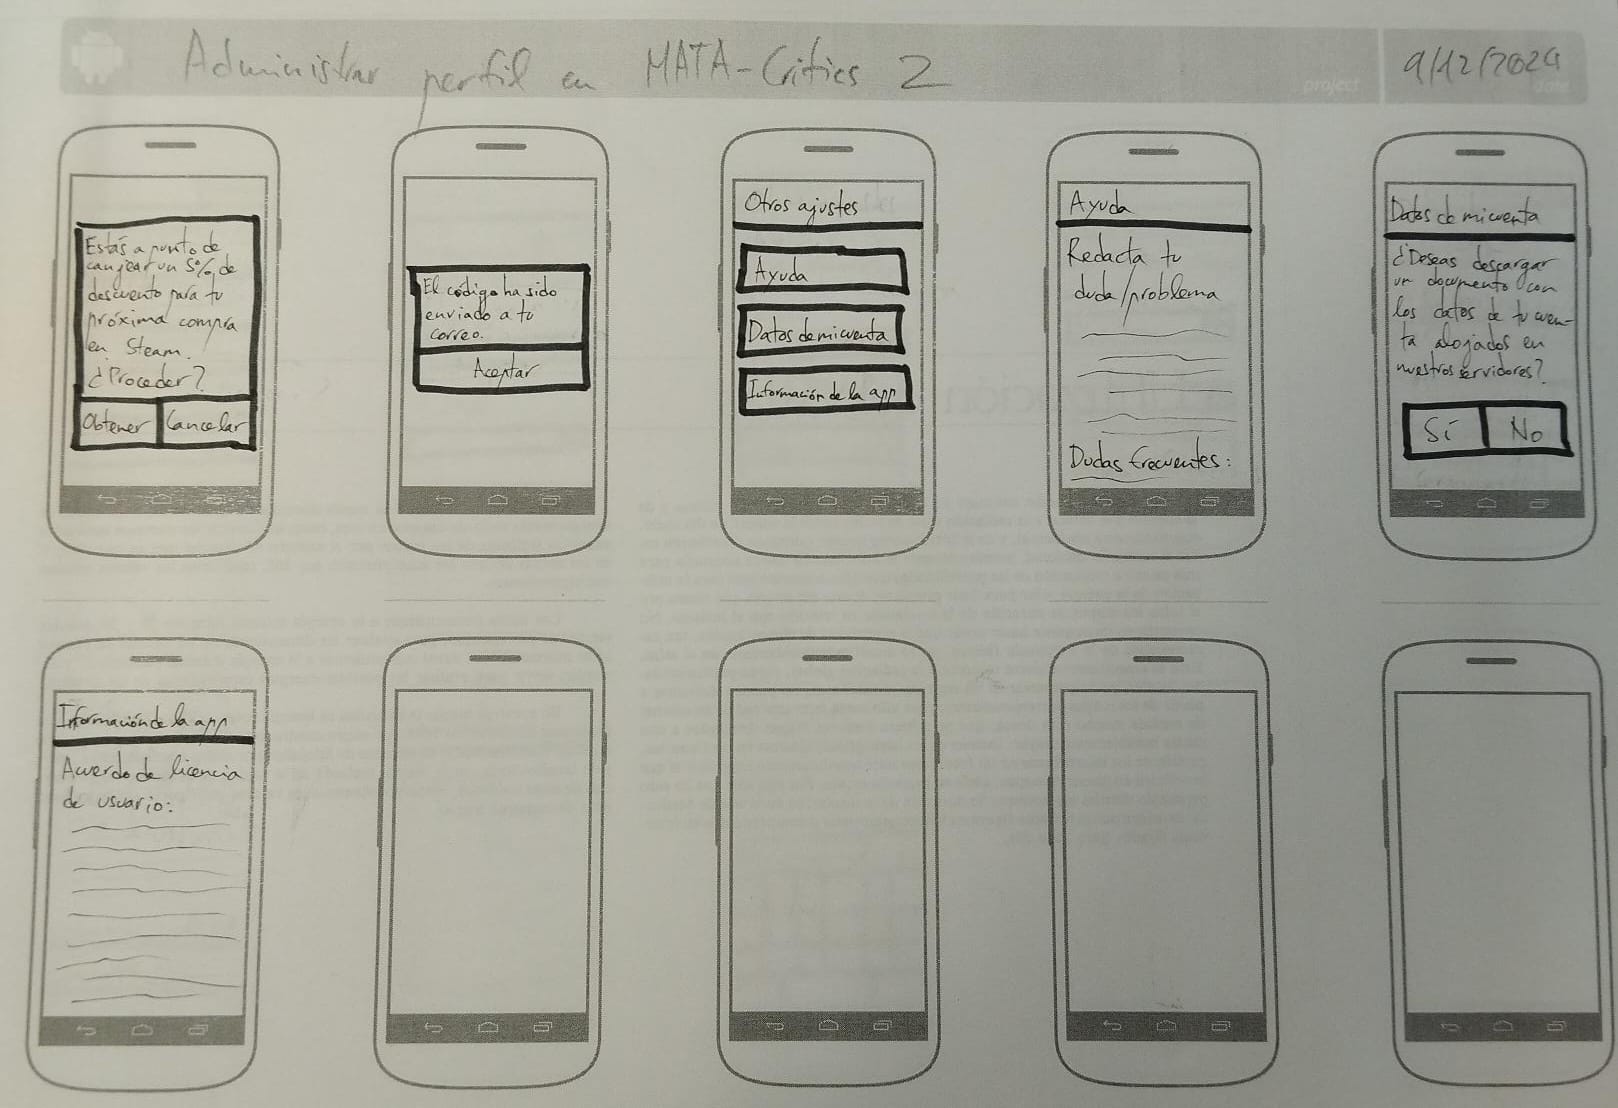 Administrar perfil en MATA-Critics 2
project
9/12/2024
date
Estás a punto de
canjear un 5% de
descuento para tu
próxima compra
en Steam.
¿Proceder?
Obtener
Cancelar
El código ha sido
enviado a tu
correo.
Aceptar
Otros ajustes
Ayuda
Datos de mi cuenta
Información de la app
Ayuda
Redacta tu
duda/problema
Dudas frecuentes:
Datos de mi cuenta
¿Deseas descargar
un documento con
los datos de tu cuen-
ta alojados en
nuestros servidores?
Sí
No
Información de la app
Acuerdo de licencia
de usuario: